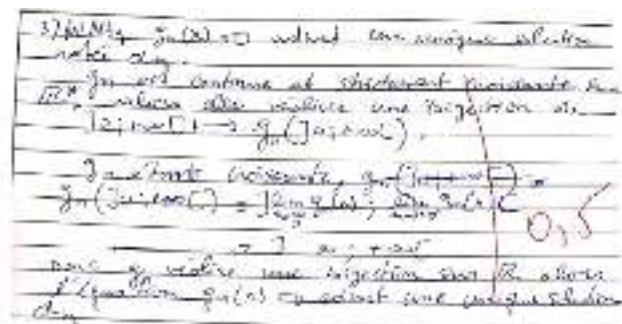 3) Mq gn(x)=0 admet une unique solution
notée αn.
gn est continue et strictement croissante sur
alors elle réalise une bijection de
]0;+∞[ → gn(]0;+∞[).
gn étant croissante, gn(]0;+∞[) =
gn(]0;+∞[) = ]lim gn(x); lim gn(x)[
0,5
= ] -∞; +∞[
donc gn réalise une bijection sur ℝ alors
l'équation gn(x)=0 admet une unique solution
αn